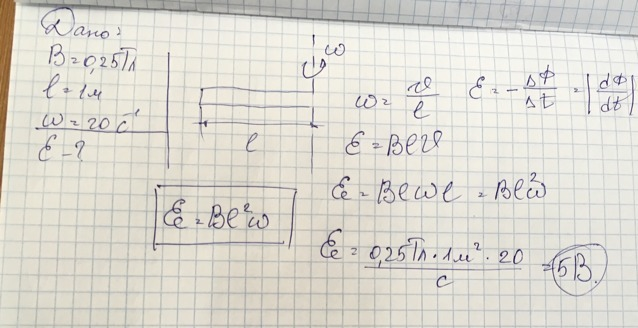 Дано:
B=0,25Тл
l=1м
ω=20 с⁻¹
ℰ-?
ω
l
ω=υ/l
ℰ=-ΔФ/Δt=|dФ/dt|
ℰ=Blυ
ℰ=Blωl=Bl²ω
ℰ=Bl²ω
ℰ=0,25Тл·1м²·20/с=5В.